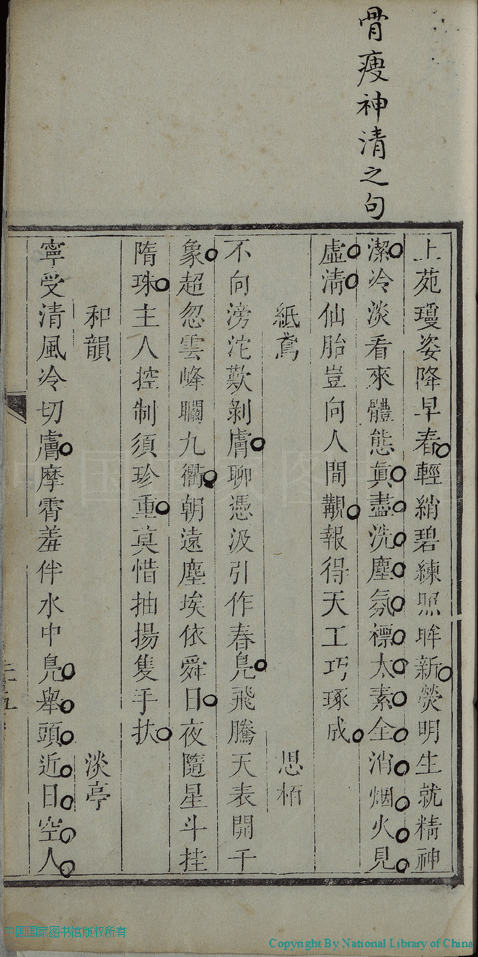 骨瘦神清之句
上苑瓊姿降早春輕綃碧練照眸新熒明生就精神
潔冷淡看來體態真盡洗塵氛標太素全消烟火見
虛清仙胎豈向人間覯報得天工巧琢成
紙鳶　思栢
不向滂沱歎剝膚聊憑汲引作春鳧飛騰天表開千
象超忽雲峰矙九衢朝遠塵埃依舜日夜隨星斗挂
隋珠主人控制須珍重莫惜抽揚隻手扶
和韻　淡亭
寧受清風冷切膚摩霄羞伴水中鳧舉頭近日空人
中国国家图书馆版权所有
Copyright By National Library of China